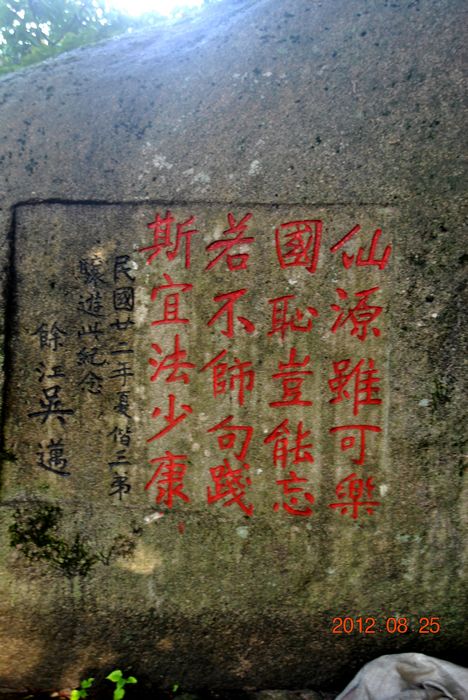 仙源雖可樂
國恥豈能忘
若不師句踐
斯宜法少康
民國廿二年夏偕三弟
驤遊此紀念
餘江吳邁
2012.08.25